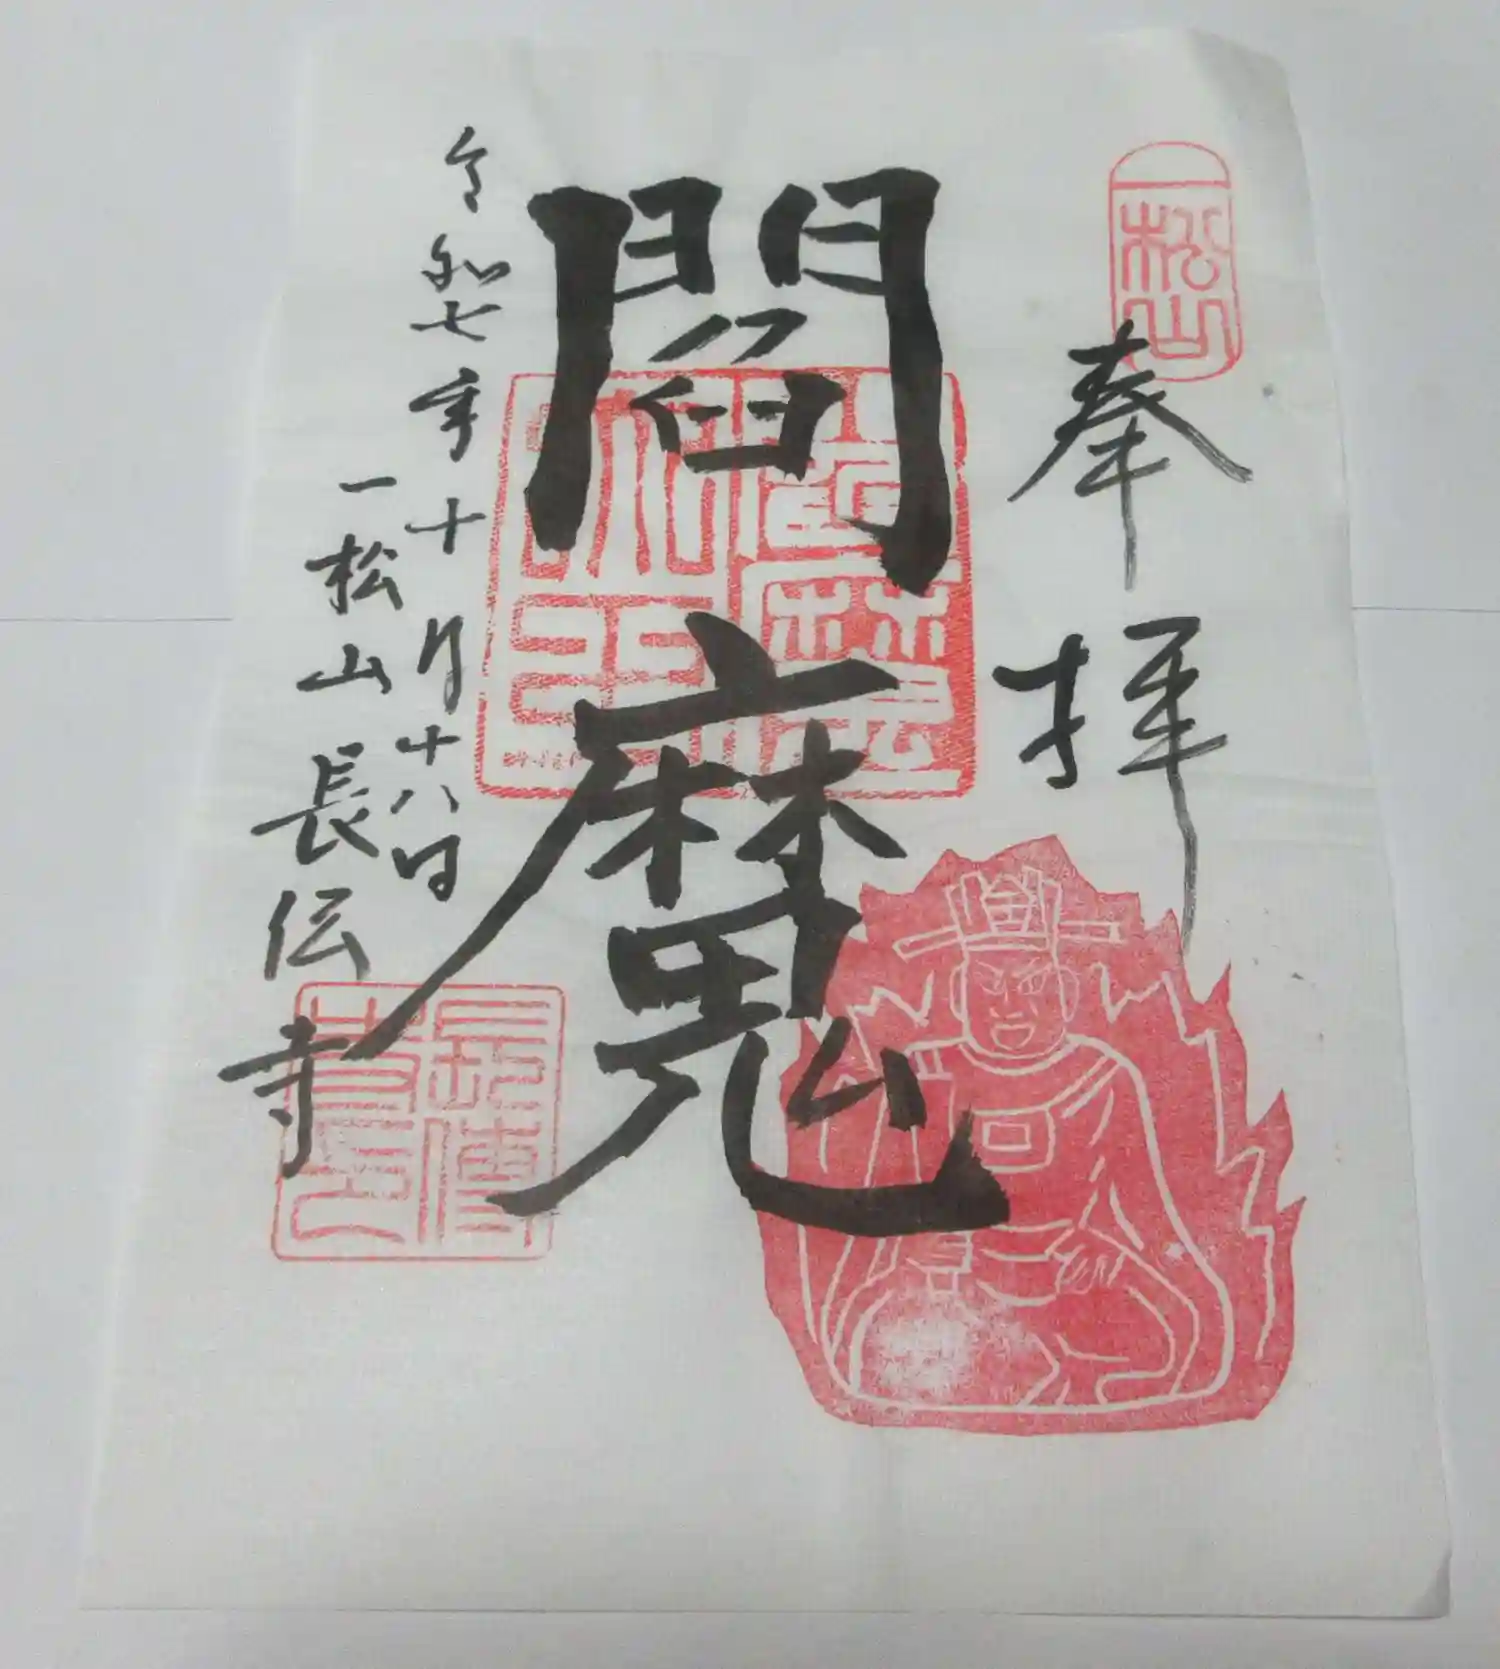 一松山
奉拝
閻魔
令和七年十月十八日
一松山長伝寺
長傳寺印